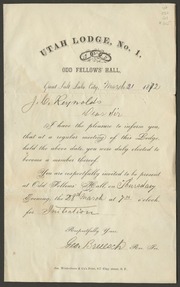 UTAH LODGE, No. 1,
I.O.O.F.
ODD FELLOWS HALL,
Great Salt Lake City, March 21 1872
J. C. Reynolds
Dear Sir
I have the pleasure to inform you,
that at a regular meeting of this Lodge,
held the above date, you were duly elected to
become a member thereof.
You are respectfully invited to be present
at Odd Fellows Hall on Thursday
Evening the 28th March at 7 o'clock
for Initiation
Respectfully Yours
Rec. Sec.